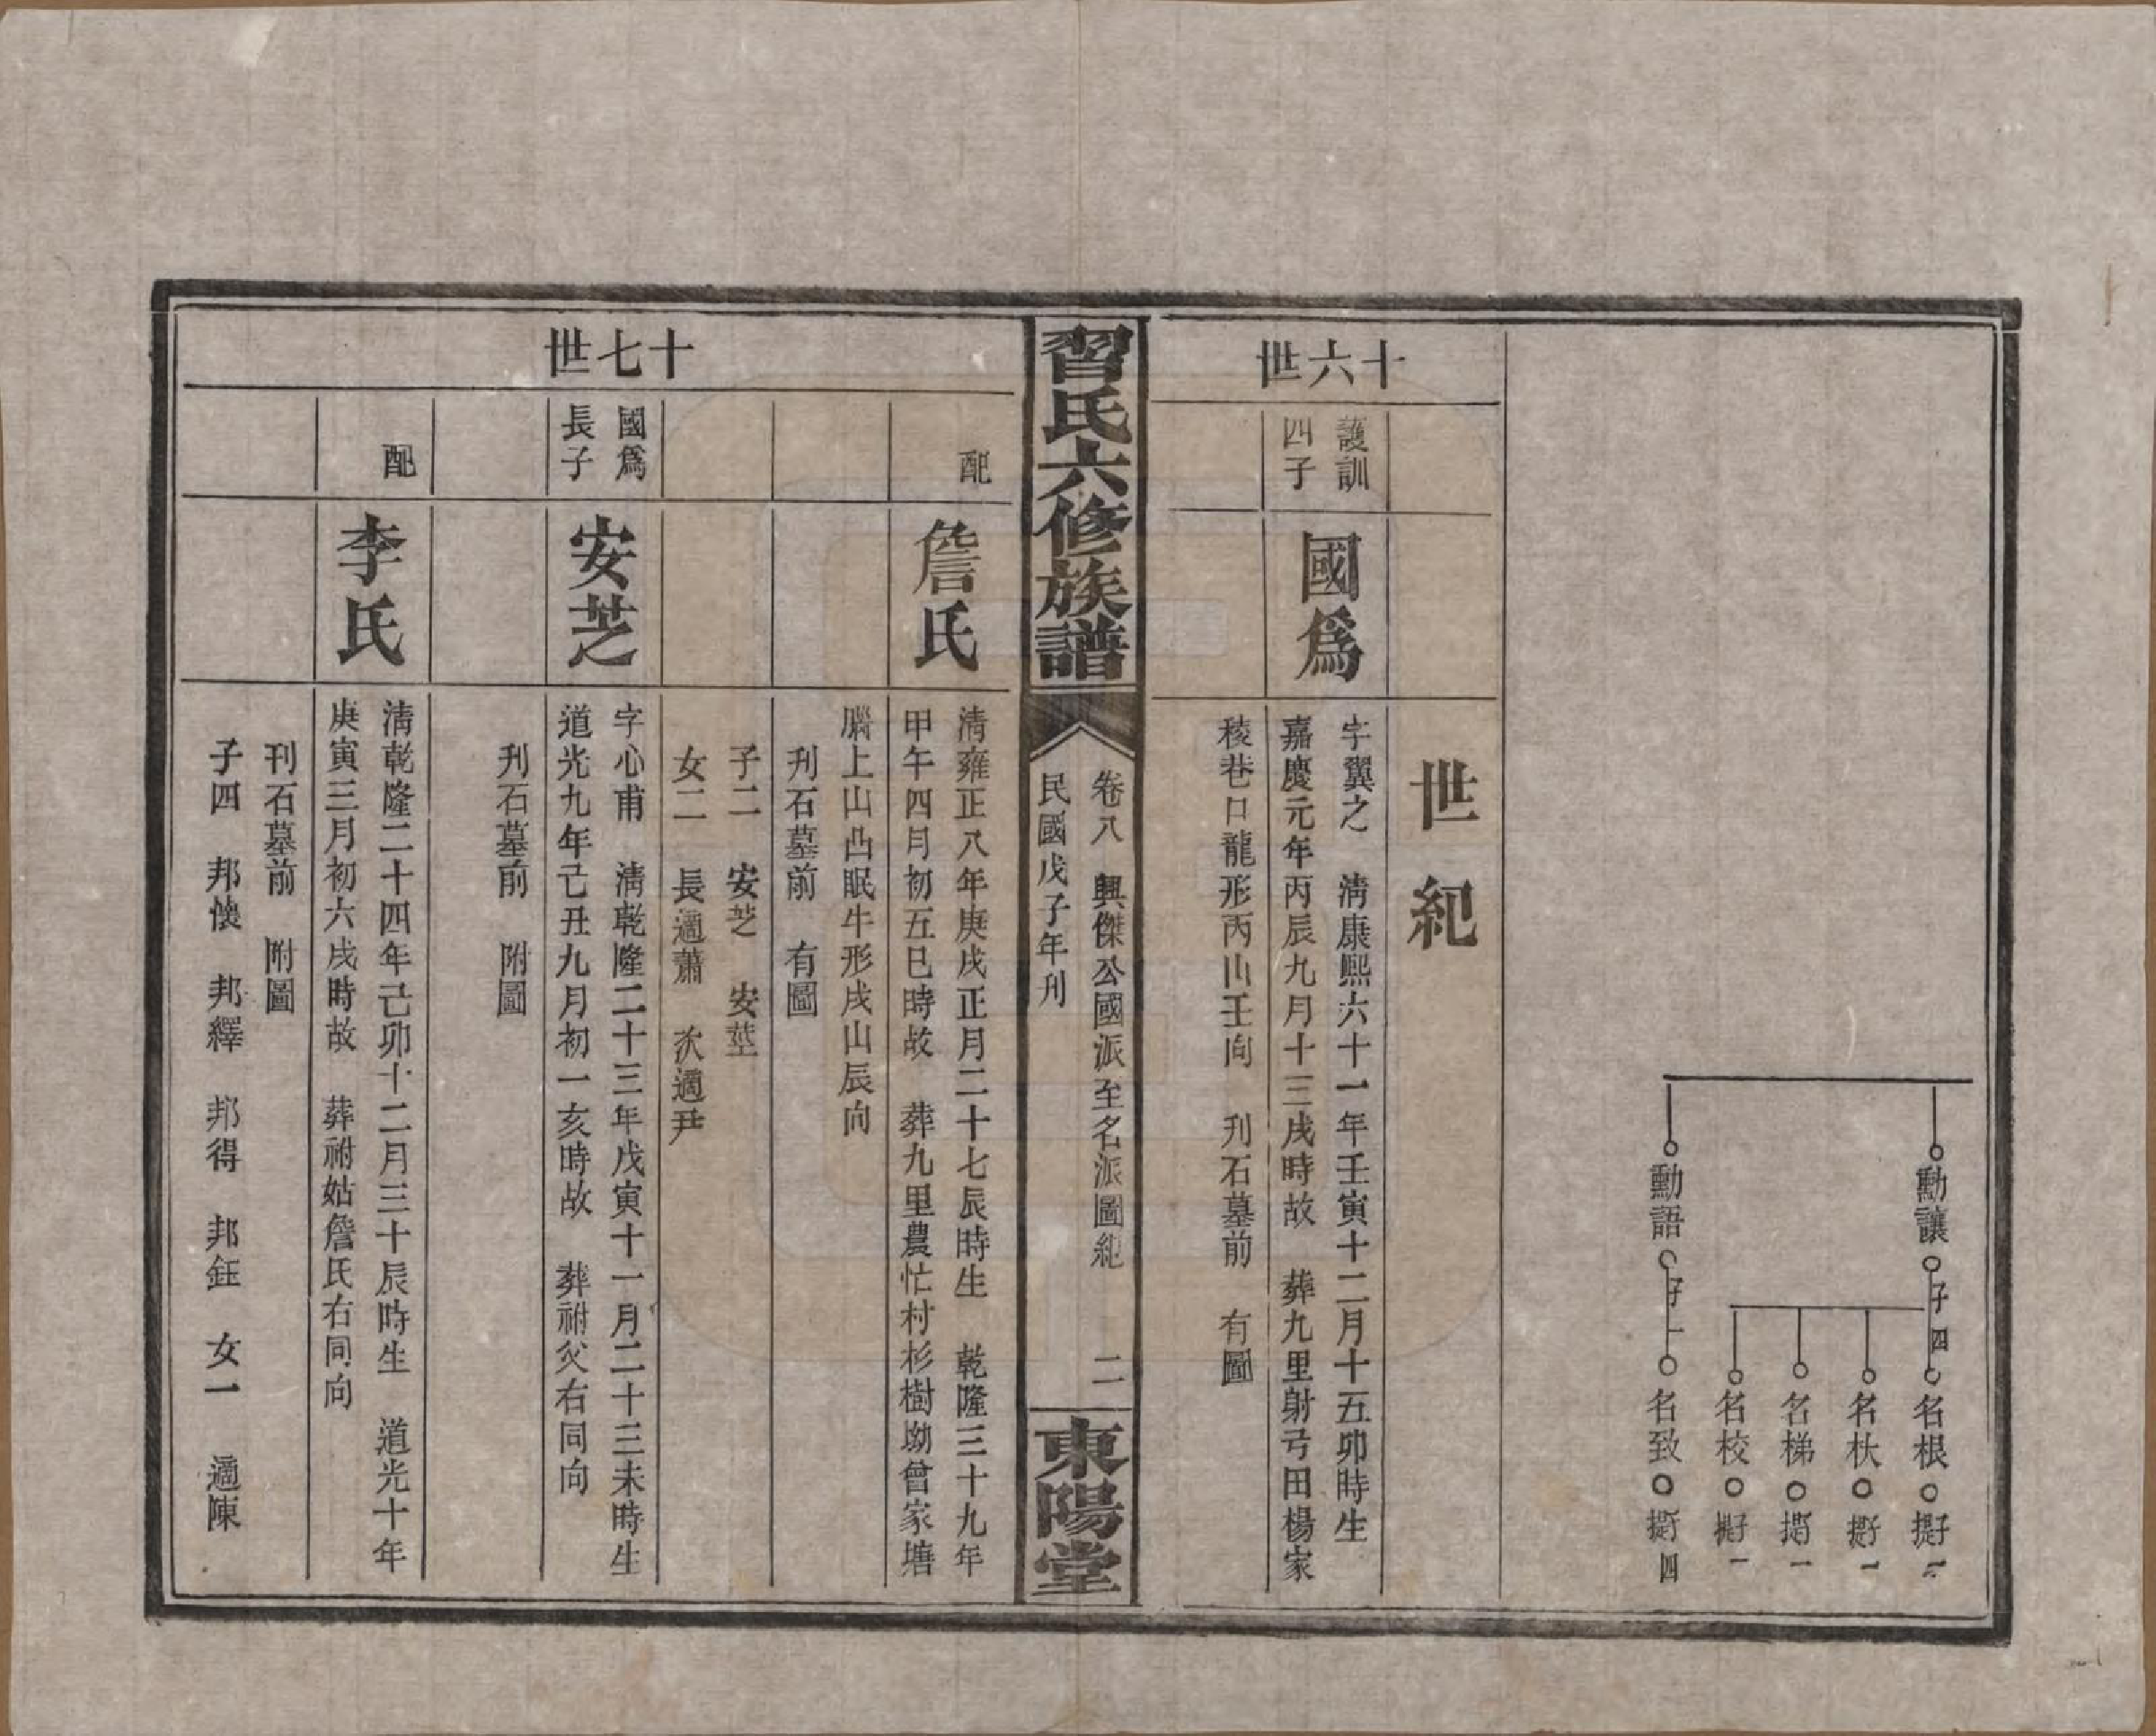 勳讓 子四
名根
名杕
名梯
名校
勳語 子一
名致
世紀
十六世
護訓
四子
國爲
字翼之 淸康熙六十一年壬寅十二月十五卯時生
嘉慶元年丙辰九月十三戌時故 葬九里射弓田楊家
稜巷口龍形丙山壬向 刋石墓前 有圖
習氏六修族譜
卷八 興傑公國派至名派圖紀 二
民國戊子年刋
東陽堂
配
詹氏
淸雍正八年庚戌正月二十七辰時生 乾隆三十九年
甲午四月初五巳時故 葬九里農忙村杉樹坳曾家塘
腦上山凸眠牛形戌山辰向
刋石墓前 有圖
子二 安芝 安莖
女二 長適蕭 次適尹
十七世
國爲
長子
安芝
字心甫 淸乾隆二十三年戊寅十一月二十三未時生
道光九年己丑九月初一亥時故 葬祔父右同向
刋石墓前 附圖
配
李氏
淸乾隆二十四年己卯十二月三十辰時生 道光十年
庚寅三月初六戌時故 葬祔姑詹氏右同向
刋石墓前 附圖
子四 邦懷 邦繹 邦得 邦鈺 女一 適陳